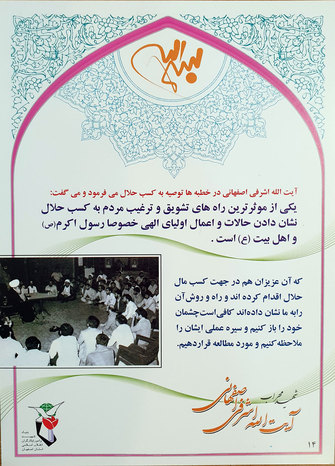 آیت الله اشرفی اصفهانی در خطبه ها توصیه به کسب حلال می فرمود و می گفت:
یکی از موثرترین راه های تشویق و ترغیب مردم به کسب حلال
نشان دادن حالات و اعمال اولیای الهی خصوصا رسول اکرم(ص)
و اهل بیت (ع) است .
که آن عزیزان هم در جهت کسب مال
حلال اقدام کرده اند و راه و روش آن
رابه ما نشان داده‌اند کافی است‌چشمان
خود را باز کنیم و سیره عملی ایشان را
ملاحظه‌کنیم و مورد مطالعه قراردهیم.
شهید محراب
آیت الله اشرفی اصفهانی
۱۴